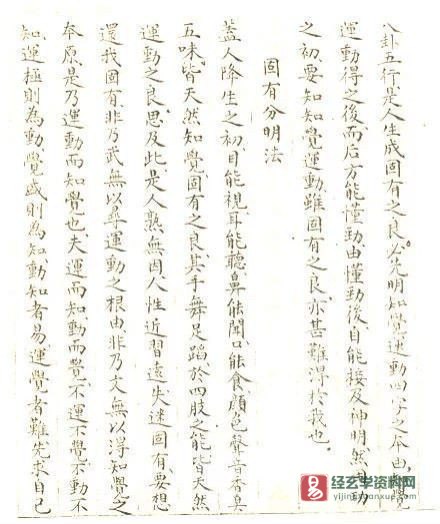 八卦五行是人生成固有之良必先明知覺運動四字之本由知覺
運動得之後而后方能懂勁由懂勁後自能接及神明然
之初要知知覺運動雖固有之良亦甚難得於我也
固有分明法
蓋人降生之初目能視耳能聽鼻能聞口能食顏色聲音香臭
五味皆天然知覺固有之良其手舞足蹈於四肢之能皆天然
運動之良思及此是人孰無因人性近習遠失迷固有要想
還我固有非乃武無以尋運動之根由非乃文無以得知覺之
本原是乃運動而知覺也夫運而知動而覺不運不覺不動不
知運極則為動覺盛則為知動知者易運覺者難先求自己
易 经玄学资料网
yijinxuanxue.com